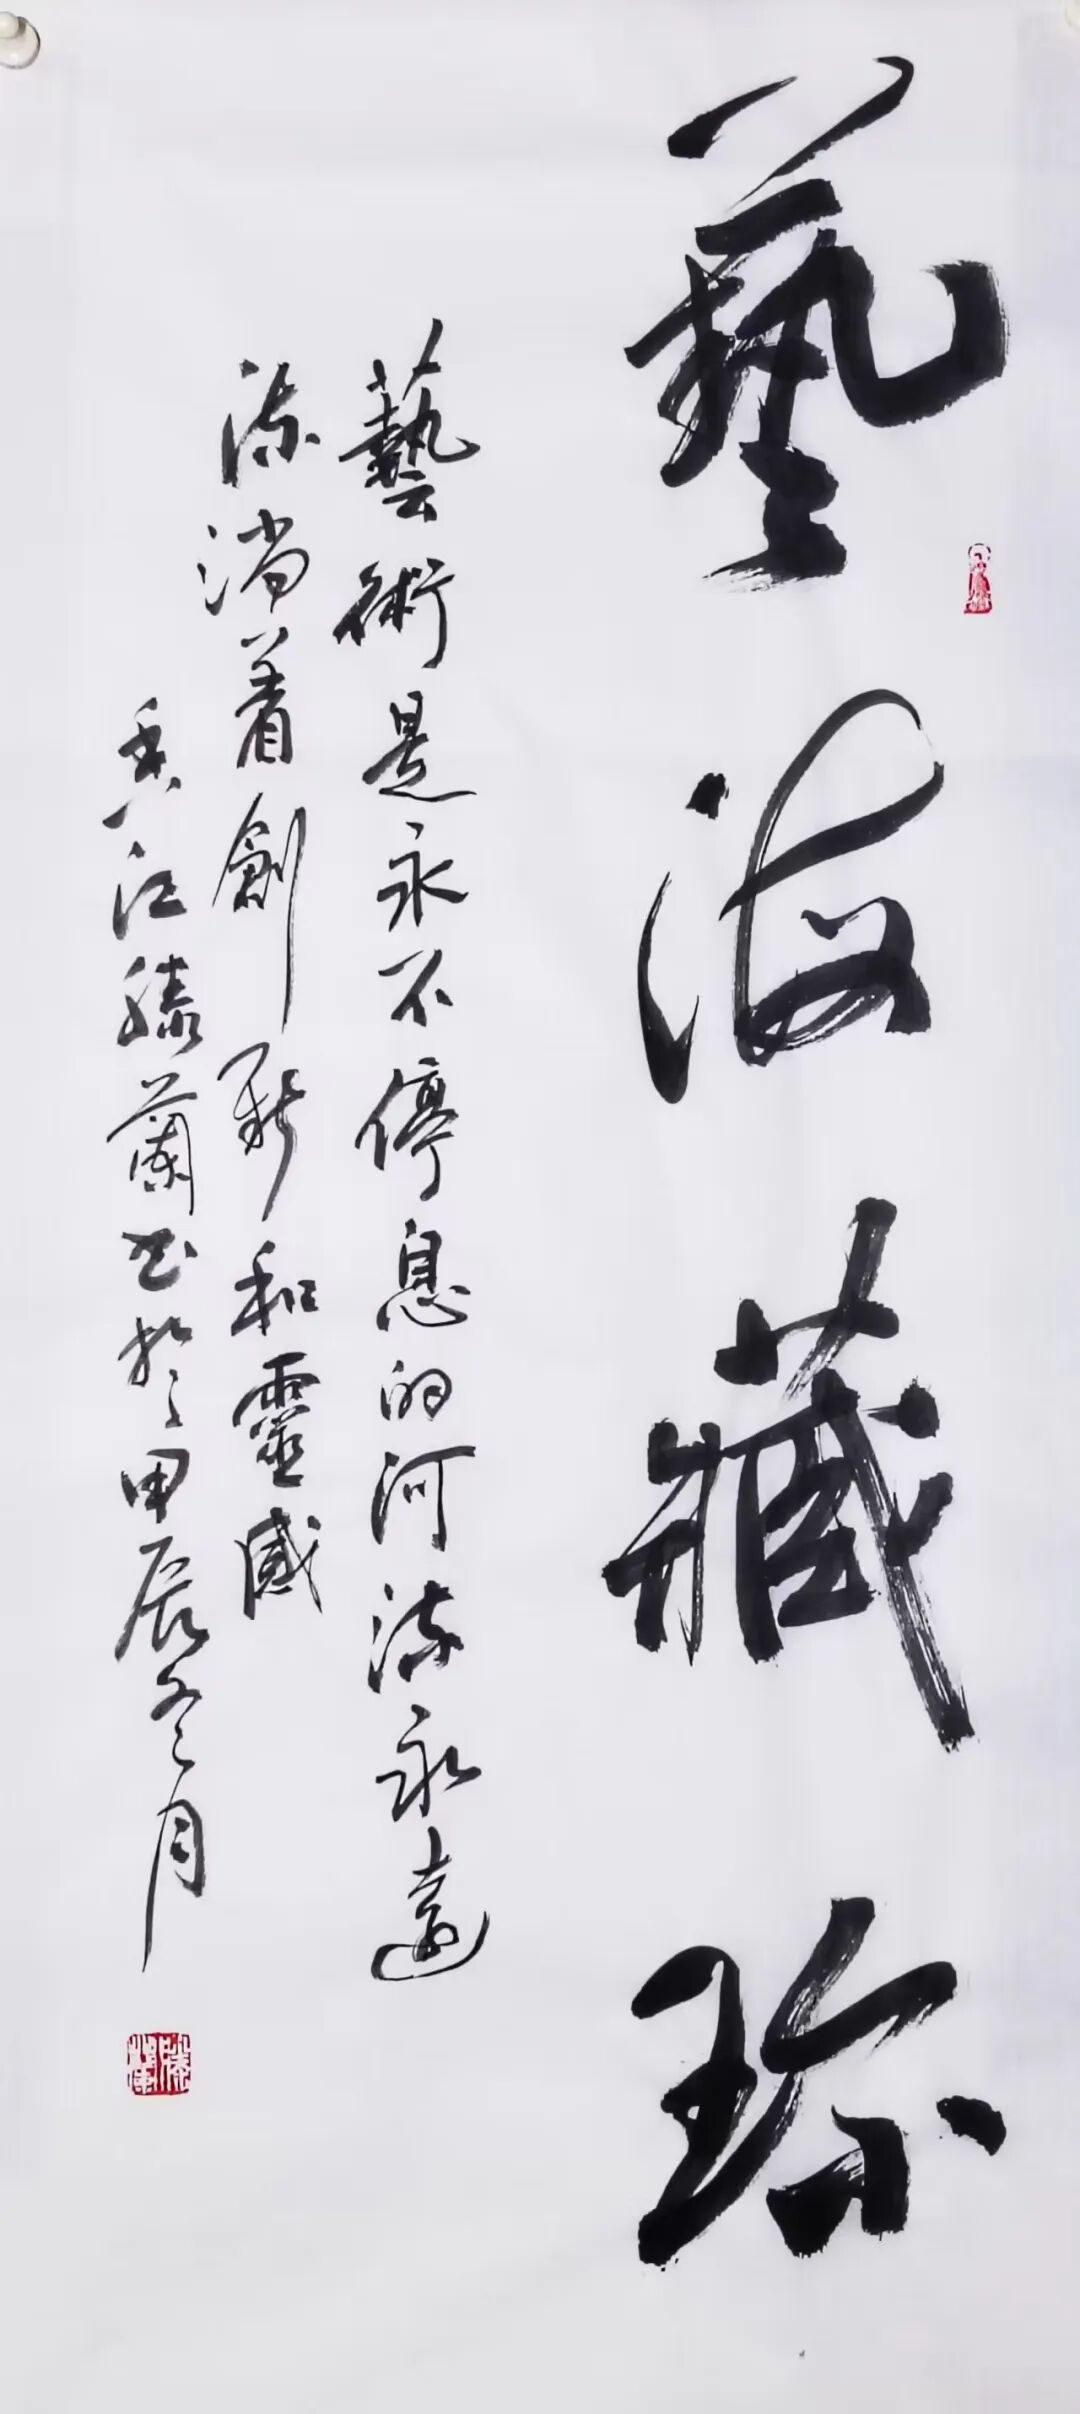 藝海藏珍
藝術是永不停息的河流永遠
流淌着創新和靈感
香江滕蘭書於甲辰冬月
滕蘭